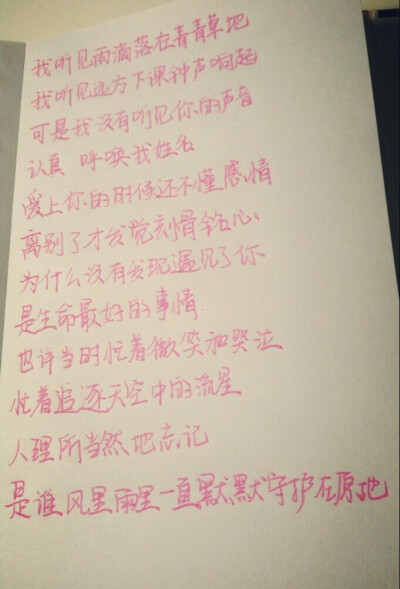 我听见雨滴落在青青草地
我听见远方下课钟声响起
可是我没有听见你的声音
认真 呼唤我姓名
爱上你的时候还不懂感情
离别了才发觉刻骨铭心
为什么没有发现遇见了你
是生命最好的事情
也许当时忙着微笑和哭泣
忙着追逐天空中的流星
人理所当然地忘记
是谁风里雨里一直默默守护在原地